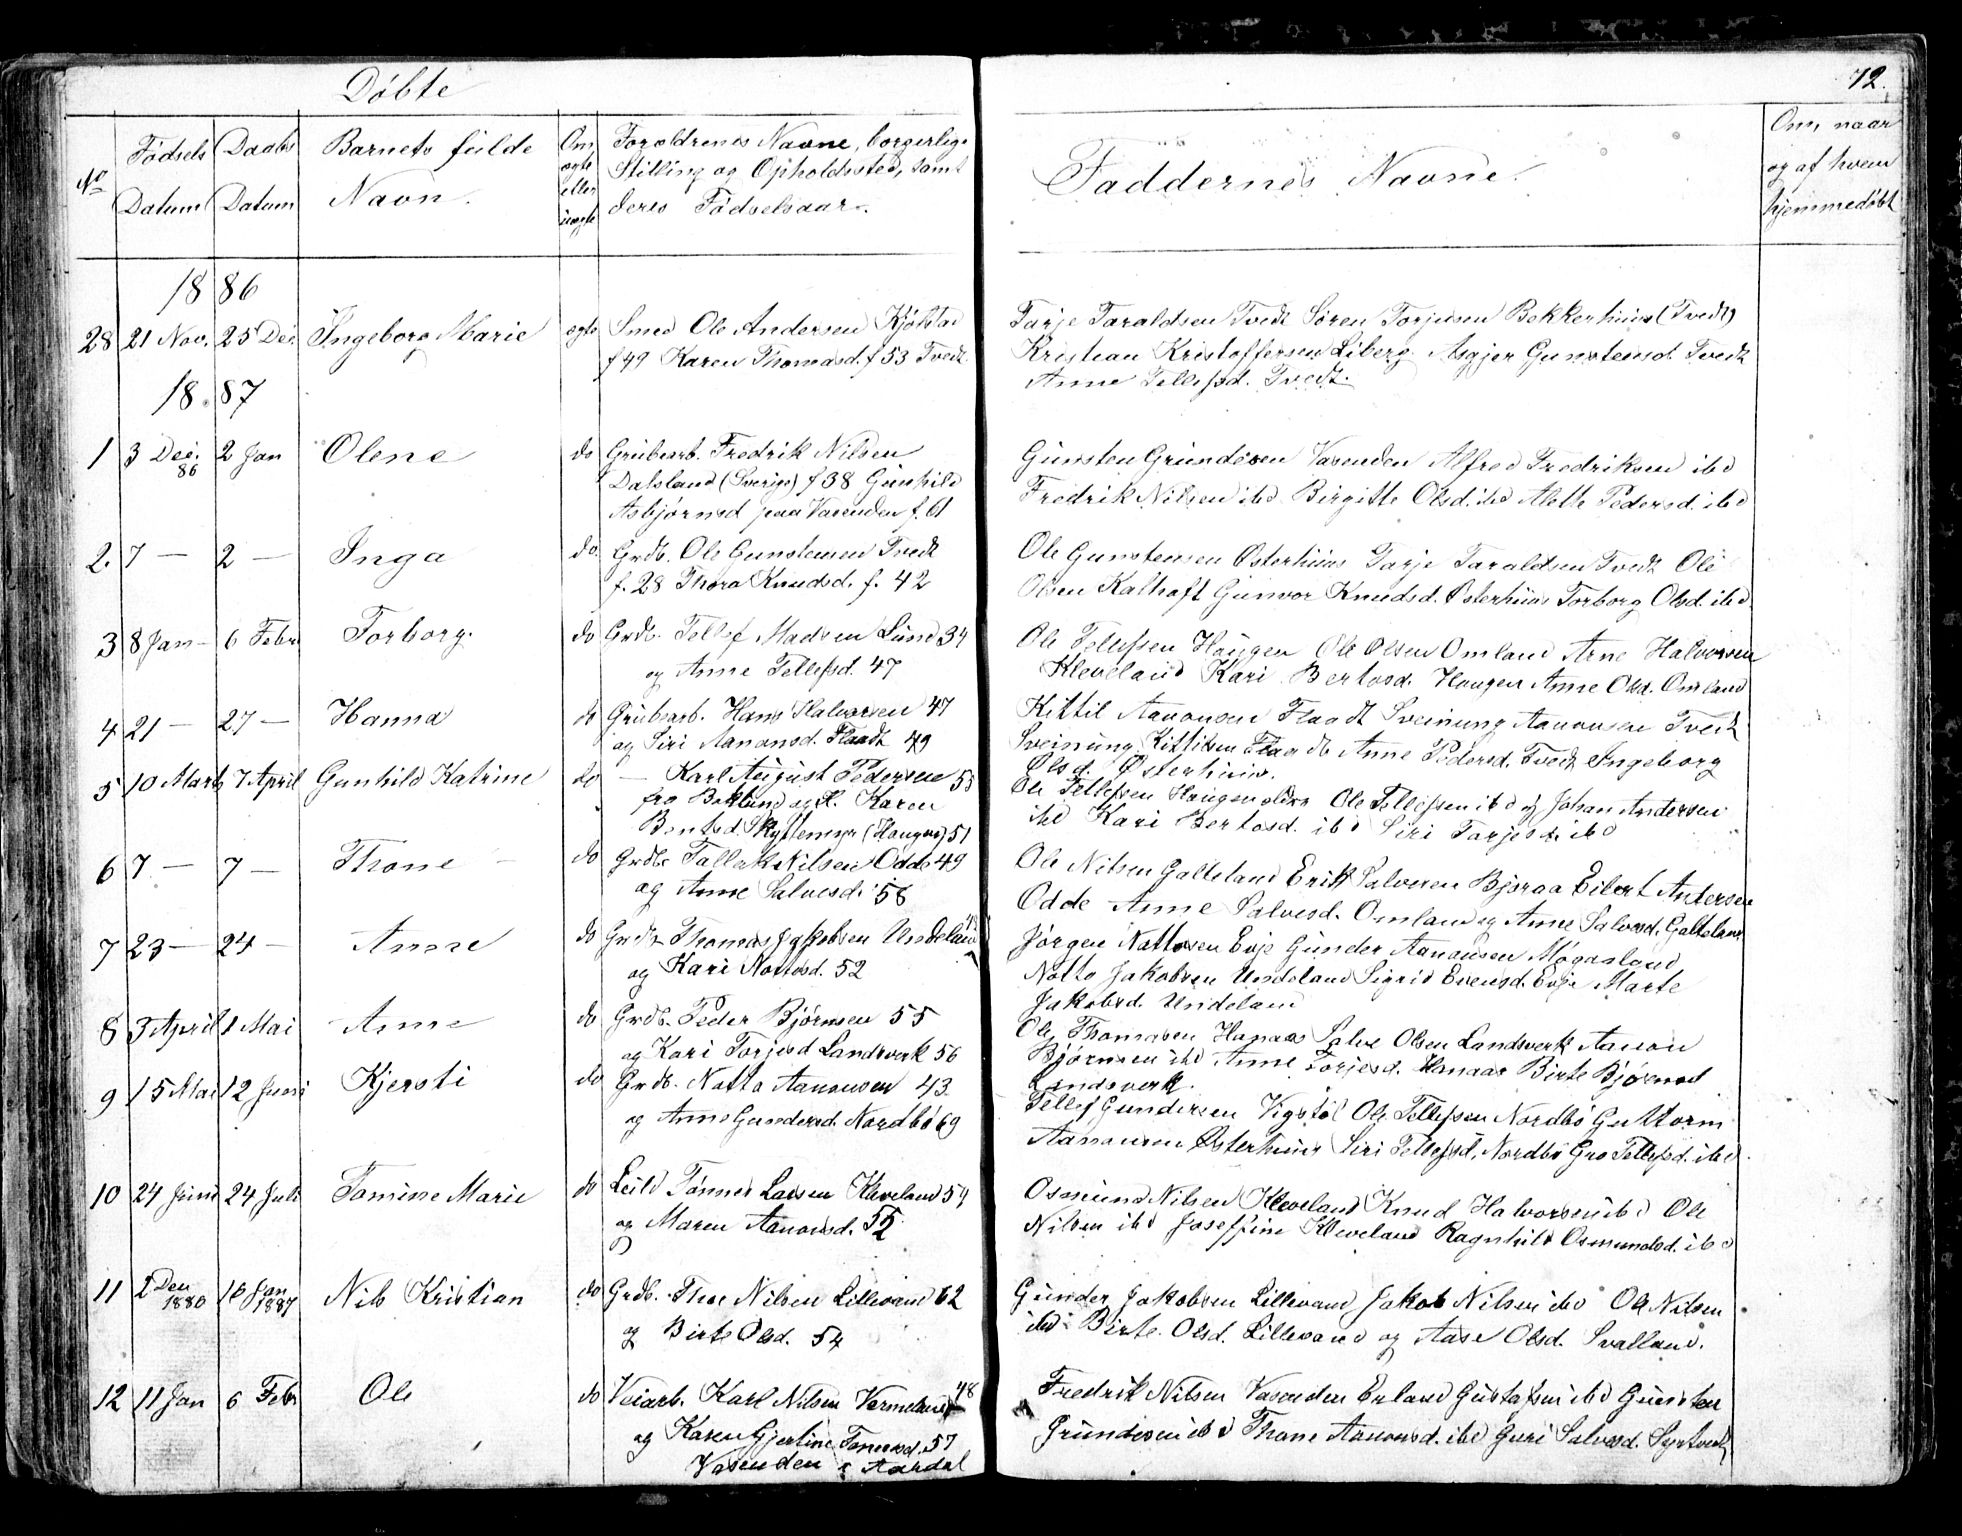 Døbte
72.
No
Fødsels Datum
Daabs Datum
Barnets fulde Navn.
Om ægte eller uægte
Forældrenes Navne, borgerlige
Stilling og Opholdssted, samt
deres Fødselsaar.
Faddernes Navne.
Om, naar
og af hvem
hjemmedøbt
1886
28 21 Nov. 25 Dec Ingeborg Marie ægte Smed Ole Andersen Kjøkstad
f 49 Karen Thomasd. f 53 Tvedt
Tarje Taraldsen Tvedt Søren Torjusen Bekkerhuus (Tvedt)
Kristian Kristoffersen Liberg Asgjer Gunstensd. Tvedt
Anne Tellefsd. Tvedt.
1887
1 3 Dec. 86 2 Jan Olene do Grubearb. Fredrik Nilsen
Dalsland (Sverige) f 38 Gunhild
Asbjørnsd paa Vasenden f. 61
Gunsten Grundesen Vasenden Alfred Fredriksen ibd
Fredrik Nilsen ibd Birgitte Olsd. ibd Alette Pedersd. ibd
2. 7 — 2 — Inga do. Grdb. Ole Gunstensen Tvedt
f. 28 Thora Knudsd. f. 42
Ole Gunstensen Østerhuus Tarje Taraldsen Tvedt Ole
Olsen Kalhoft Gunvor Knudsd. Østerhuus Torborg Olsd. ibd
3 8 Jan — 6 Febr Torborg. do Grdb. Tellef Madsen Lund 34
og Anne Tellefsd. 47
Ole Tellefsen Haugen Ole Olsen Omland Arne Halvorsen
Kleveland Kari Bertosd. Haugen Anne Olsd. Omland
4 21 — 27 — Hanna do Grubearb. Hans Halvorsen 47
og Siri Aanonsd. Flaadt 49
Kittil Aanonsen Flaadt Sveinung Aanonsen Tvedt
Sveinung Kittilsen Flaadt Anne Pedersd. Tvedt Ingeborg
Olsd. Østerhuus.
5 10 Marts 7 April Gunhild Katrine do — Karl August Pedersen 53
fra Boklund og H. Karen
Bentsd. Skyttemyr (Haugen) 51
Ole Tellefsen Haugen eldre Ole Tellefsen ibd og Johan Andersen
ibd Kari Bertosd. ibd Siri Tarjesd. ibd
6 7 — 7 — Thone do Grdb. Tallak Nilsen Odde 49
og Anne Salvesd. 58
Ole Nilsen Galteland Erik Salvesen Bjoraa Eilert Antersen
Odde Anne Salvesd. Omland og Anne Salvesd. Galteland
7 23 — 24 — Anne do Grdb. Thomas Jakobsen Undeland
og Kari Nottosd. 52
Jørgen Nottosen Evje Gunder Aanonsen Møgaaland
Notto Jakobsen Undeland Sigrid Evensd. Evje Marte
Jakobsd. Undeland
8 3 April 1 Mai Anne do Grdb. Peder Bjørnsen 55
og Kari Torjesd Landsverk 56
Ole Thomasen Hanaas Salve Olsen Landsverk Aanon
Bjørnsen ibd Anne Torjesd. Hanaas Birte Bjørnsd
Landsverk.
9 15 Mai 12 Juni Kjersti do Grdb. Notto Aanonsen 43
og Anne Gundersd. Nordbø 69
Tellef Gundersen Vigstøl Ole Tellefsen Nordbø Guttorm
Aanonsen Østerhuus Siri Tellefsd. Nordbø Gro Tellefsd. ibd.
10 24 Juni 24 Juli Tomine Marie do Leild Tønnes Larsen Kleveland 54
og Maren Aanonsd. 55
Osmund Nilsen Kleveland Knud Halvorsen ibd Ole
Nilsen ibd Josefine Kleveland Ragnhild Osmundsd. ibd
11 2 Dec 1886 16 Jan 1887 Nils Kristian do Grdb. Thor Nilsen Lillevand 62
og Birte Olsd. 54
Gunder Jakobsen Lillevand Jakob Nilsen ibd Ole Nilsen
ibd Birte Olsd. Lillevand og Aase Olsd. Svalland.
12 11 Jan 6 Febr Ole do Veiarb. Karl Nilsen Vermeland 48
og Karen Gjertine Tomasd. 57
Vasenden i Aardal
Fredrik Nilsen Vasenden Erland Gustafsen ibd Gunsten
Grundesen ibd Thone Aanonsd. ibd Guri Salvesd. Syrtveit